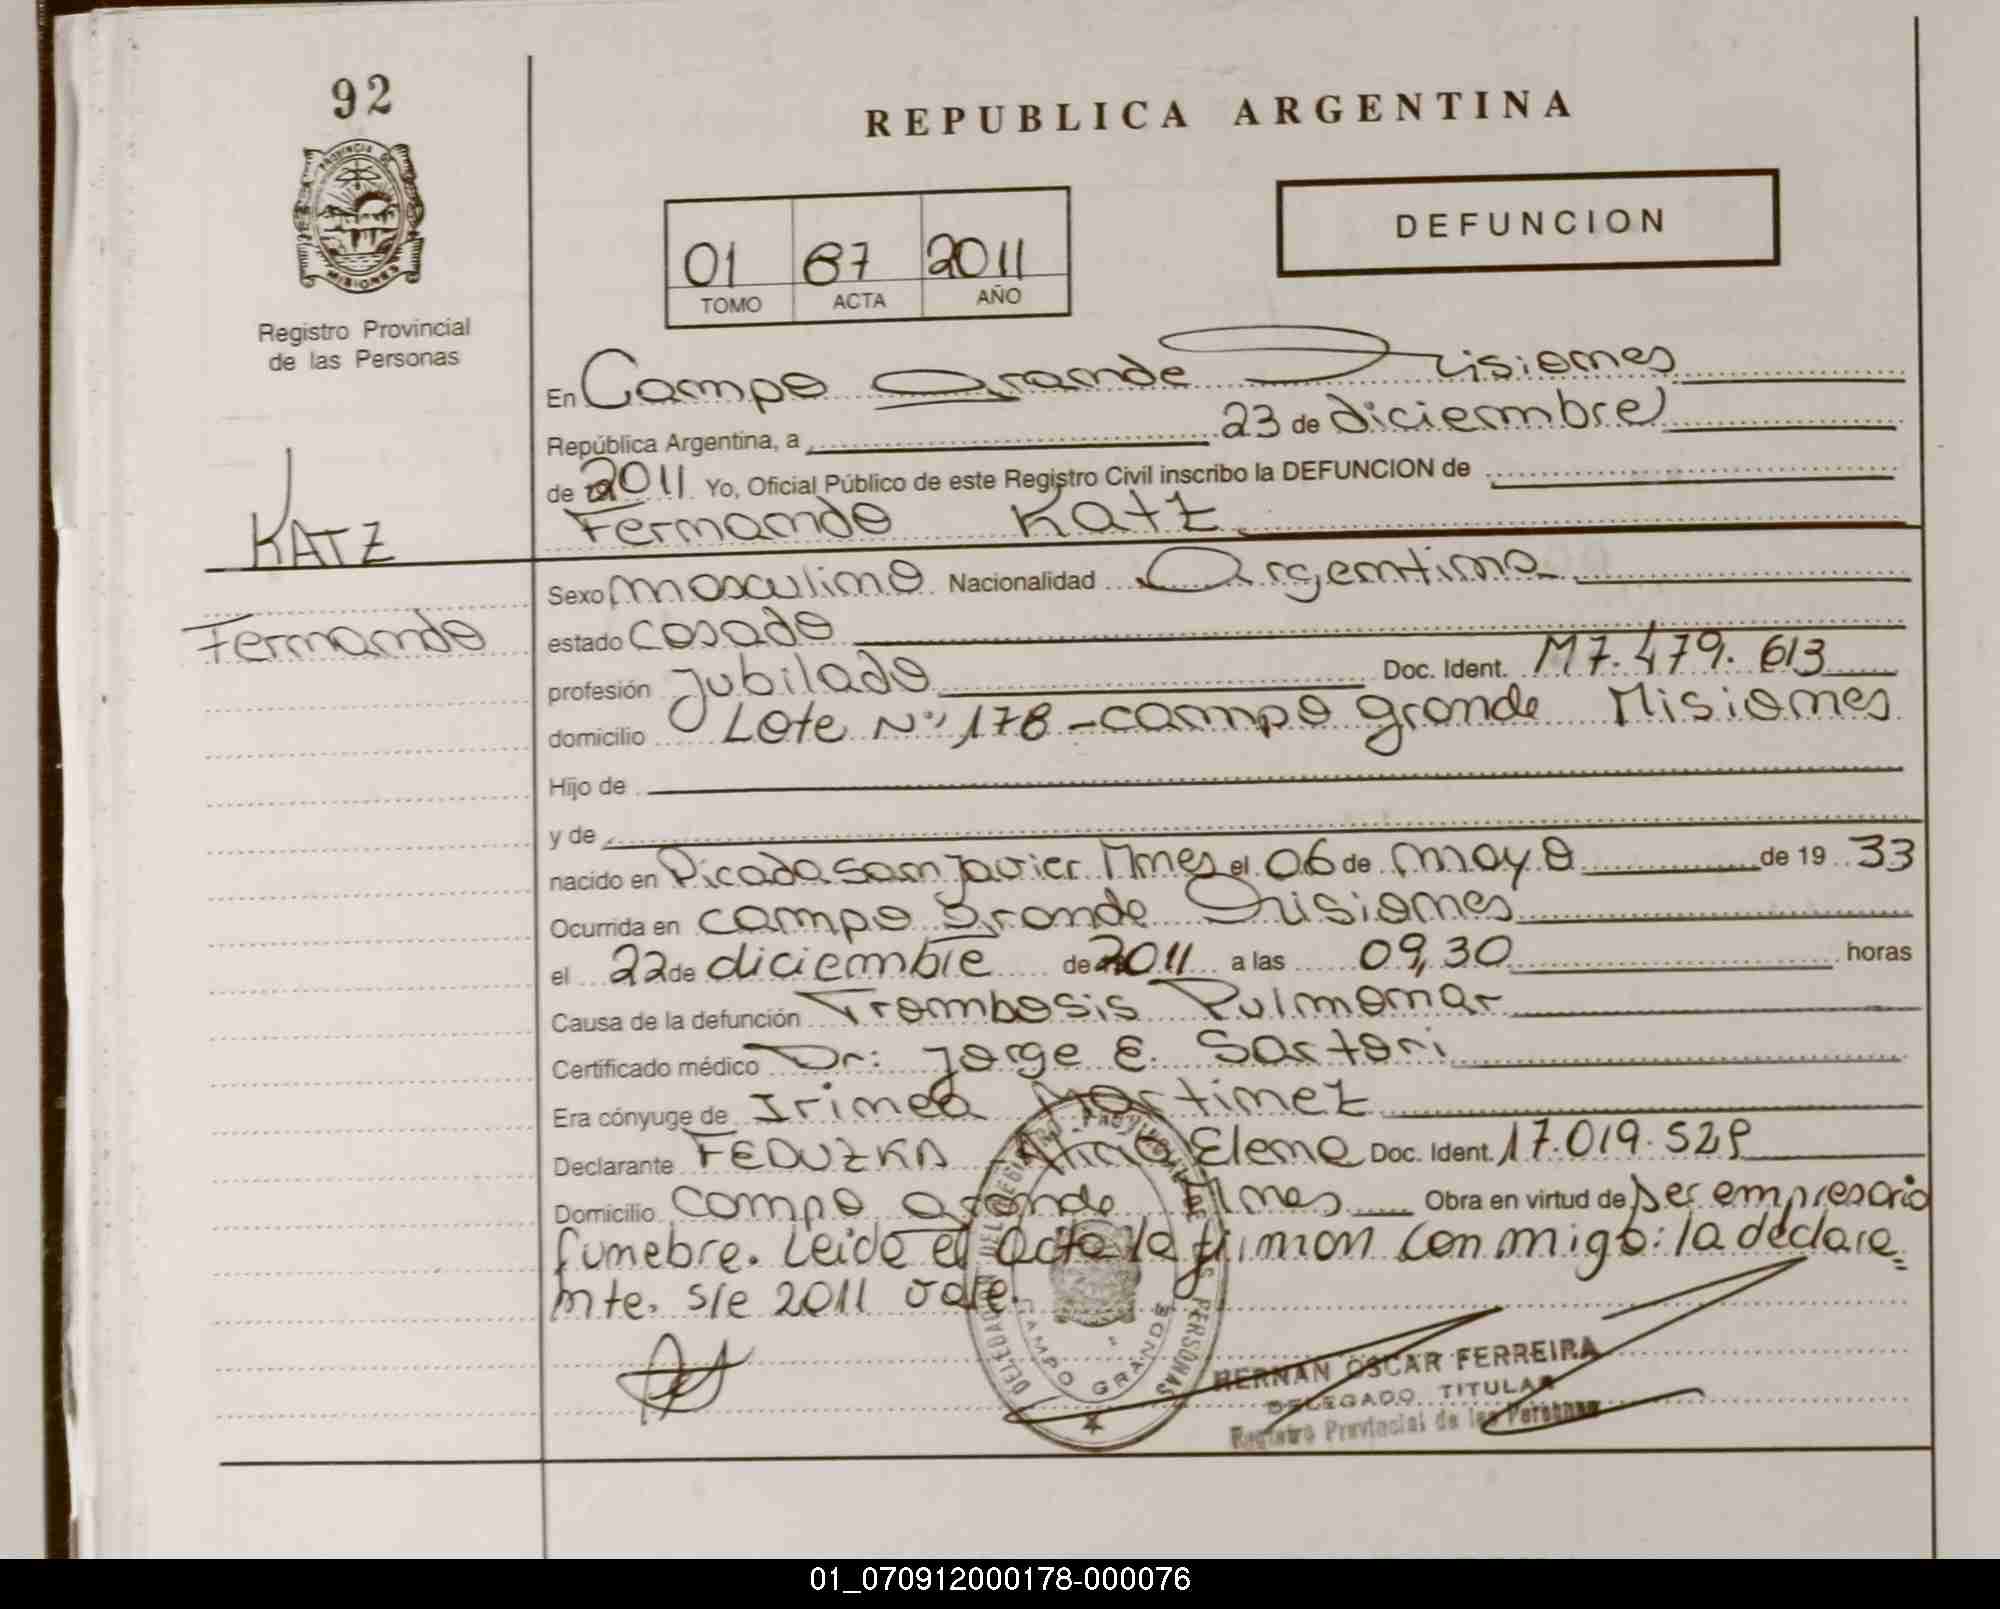 92
REPUBLICA ARGENTINA
PROVINCIA DE
MISIONES
Registro Provincial
de las Personas
DEFUNCION
01 67 2011
TOMO ACTA AÑO
En Campo Grande Misiones
República Argentina, a 23 de diciembre
de 2011 Yo, Oficial Público de este Registro Civil inscribo la DEFUNCION de
KATZ
Fernando Katz
Sexo masculino Nacionalidad Argentina
Fernando
estado casado
profesión Jubilado Doc. Ident. M7.479.613
domicilio Lote Nº 178 - campo grande Misiones
Hijo de
y de
nacido en Picada San Javier Mnes el 06 de mayo de 19 33
Ocurrida en campo Grande Misiones
el 22 de diciembre de 2011 a las 09,30 horas
Causa de la defunción Trombosis Pulmonar
Certificado médico Dr: Jorge E. Sartori
Era cónyuge de Irinea Martinez
Declarante FEDUZKA Alicia Elena Doc. Ident. 17.019.529
Domicilio campo grande Mnes Obra en virtud de ser empresario
funebre. Leida el acta la firman conmigo: la declara
nte. s/e 2011 vale.
CAMPO GRANDE
HERNAN OSCAR FERREIRA
DELEGADO TITULAR
Registro Provincial de las Personas
01_070912000178-000076